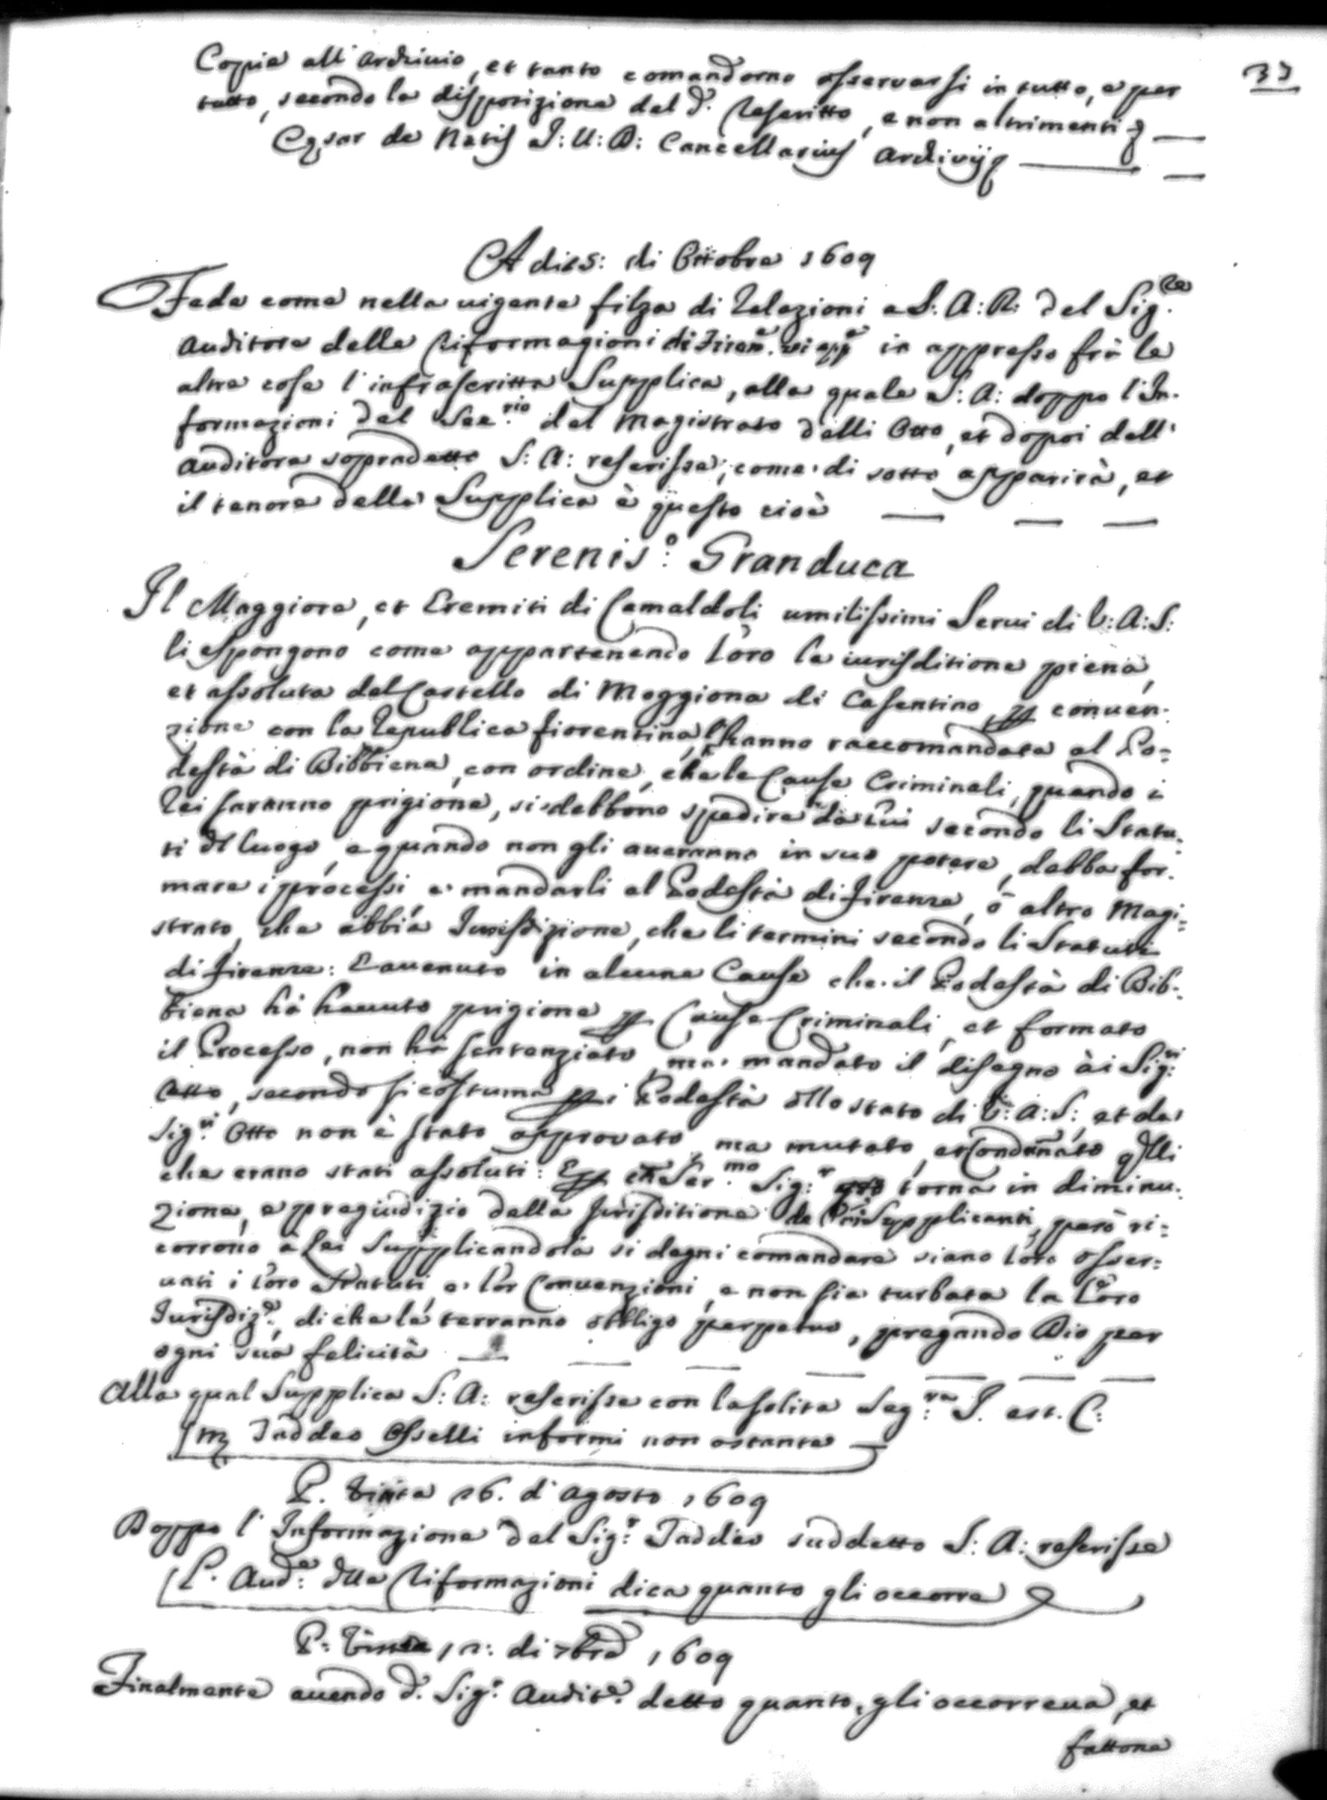 33
Copia all'Archiuio, et tanto comandorno osseruarsi in tutto, e per
tutto, secondo la disposizione del d.º Rescritto, e non altrimenti
Cęsar de Natis J: U: D: Cancellarius Archivij
A di 25: di Ottobre 1609
Fede come nella uigente filza di Relazioni a S: A: R: del Sig.re
Auditore delle Riformagioni di Firenz.e in appresso frà le
altre cose l'infrascritta Supplica, alla quale S: A: doppo l'In-
formazioni del Seg.rio del Magistrato delli Otto, et dopoi dell'
Auditore sopradetto S: A: rescrisse, come di sotto apparirà, et
il tenore della Supplica è questo cioè
Serenis.º Granduca
Il Maggiore, et Eremiti di Camaldoli umilissimi Serui di V: A: S:
li espongono come appartenendo loro la iurisditione piena,
et assoluta del Castello di Moggiona di Casentino p conuen-
zione con la Republica fiorentina, l'hanno raccomandata al Po=
destà di Bibbiena, con ordine, che le Cause Criminali, quando i
Rei saranno prigione, si debbono spedire da Lui secondo li Statu-
ti del luogo, e quando non gli aueranno in suo potere, debba for-
mare i processi, e mandarli al Podestà di firenze, ò altro Magi=
strato, che abbia Iurisdizione, che li termini secondo li Statuti
di firenze: E auenuto in alcune Cause che il Podestà di Bib-
biena hà hauuto prigione p Cause Criminali, et formato
il Processo, non hà sentenziato, ma mandato il disegno ài Sig.ri
Otto, secondo si costuma p i Podestà dllo stato di V: A: S:, et da
Sig.ri Otto non è stato approuato, ma mutato, et condannato qlli
che erano stati assoluti: E p che Ser.mo Sig.r qto torna in diminu-
zione, e pregiudizio della Iurisditione de Pri Supplicanti, però ri=
corrono à Lei supplicandola si degni comandare siano loro osser=
uati i loro Statuti e lor Conuenzioni, e non sia turbata la loro
Iurisdiz.e, di che le terranno obbligo perpetuo, pregando Dio per
ogni sua felicità
Alla qual Supplica S: A: rescrisse con la solita Seg.ra J. est. C:
Taddeo Osselli informi non ostante
P. Vinta 26. d'Agosto 1609
Doppo l'Informazione del Sig.r Taddeo suddetto S: A: rescrisse
L'Aud.e dlla Riformazioni dica quanto gli occorre
P: Vinta di 7bre 1609
Finalmente auendo d.º Sig.r Audit.e detto quanto gli occorreua, et
fattone